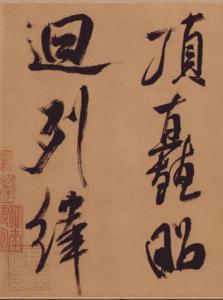 頂矗昭
迴列緯